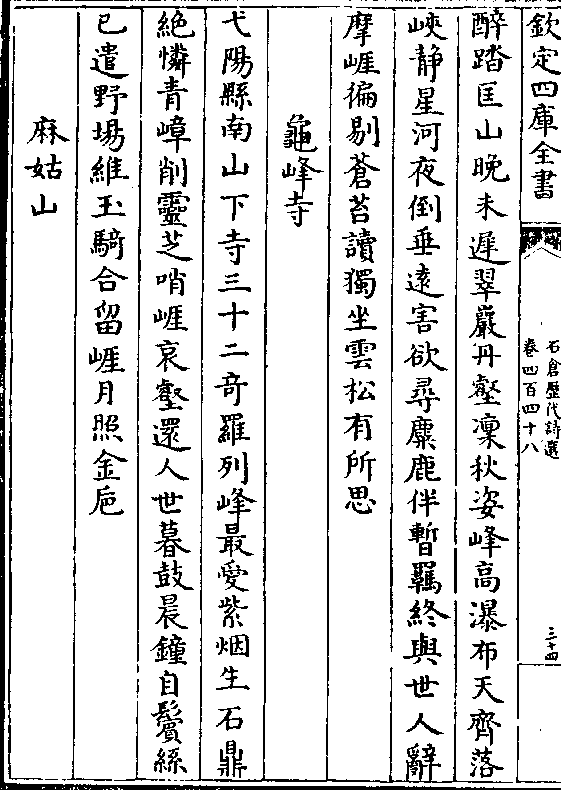 欽定四庫全書
石倉歷代詩選
卷四百四十八
三十四
醉踏匡山晚未遲翠巖丹壑凜秋姿峰高瀑布天齊落
峽静星河夜倒垂逺害欲尋麋鹿伴暫羈終與世人辭
摩崕徧剔蒼苔讀獨坐雲松有所思
龜峰寺
弋陽縣南山下寺三十二竒羅列峰最愛紫烟生石鼎
絶憐青嶂削靈芝哨崕哀壑還人世暮鼓晨鐘自鬢絲
已遣野場維玉騎合留崕月照金巵
麻姑山